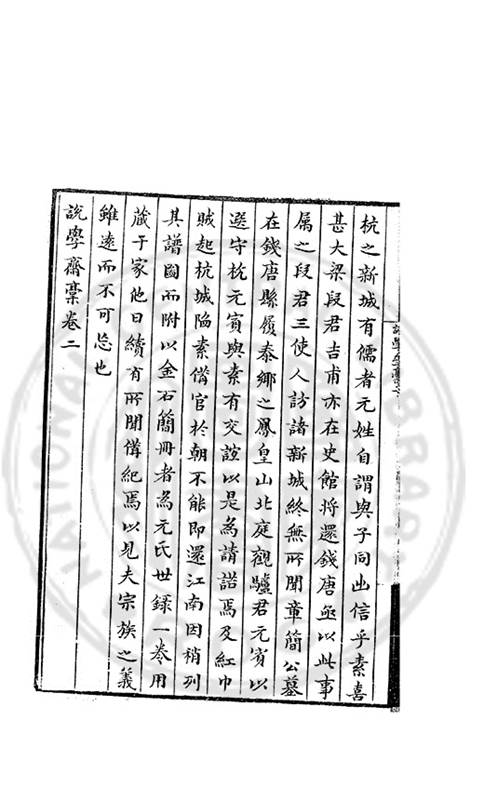 杭之新城有儒者元姓自謂與子同出信乎素喜
甚大梁段君吉甫亦在史館将還錢唐亟以此事
属之段君三使人訪諸新城終無所聞章簡公墓
在錢唐縣履泰鄉之鳳皇山北庭觀驢君元賔以
選守杭元賔與素有交誼以是為請諾焉及紅巾
賊起杭城陥素備官於朝不能即還江南因稍列
其譜圖而附以金石簡冊者為元氏世録一卷用
蔵于家他日續有所聞備紀焉以見夫宗族之義
雖遠而不可忘也
說學齋藁卷二
NATIONAL
LIBRARY